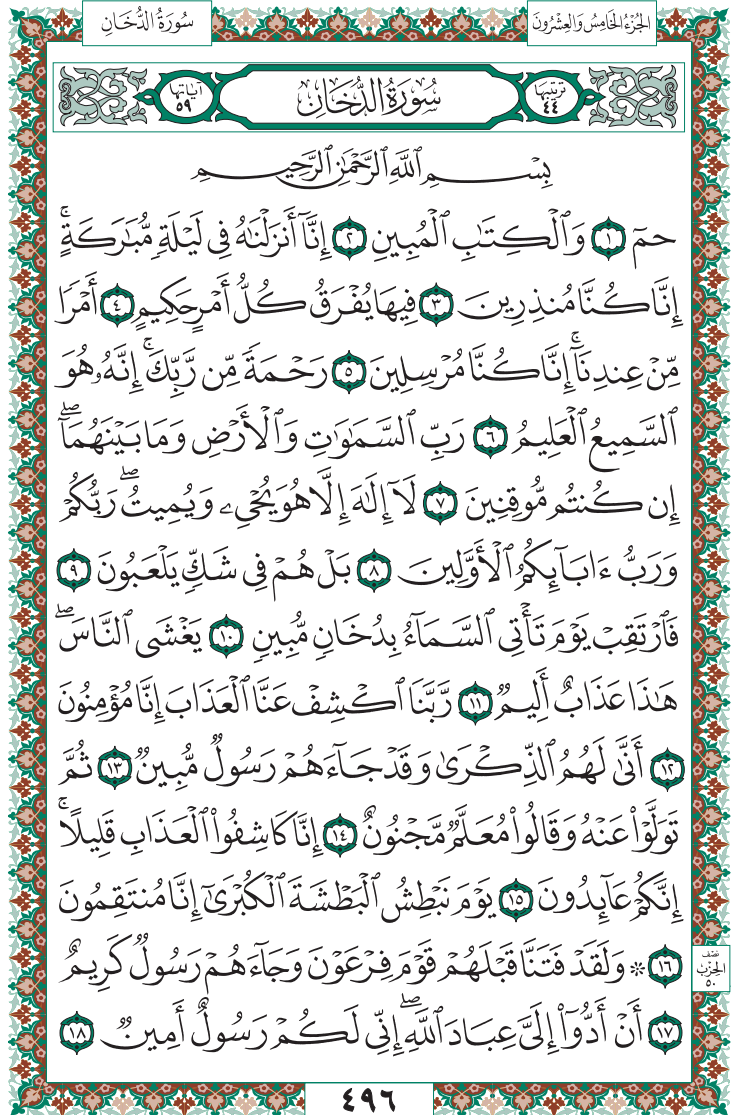 الجزء الخامس والعشرون
سورة الدخان
ترتيبها ٤٤
سُورَةُ الدُّخَانِ
آياتها ٥٩
بِسْمِ ٱللَّهِ ٱلرَّحْمَٰنِ ٱلرَّحِيمِ
حمٓ ١ وَٱلْكِتَٰبِ ٱلْمُبِينِ ٢ إِنَّآ أَنزَلْنَٰهُ فِى لَيْلَةٍ مُّبَٰرَكَةٍ ۚ
إِنَّا كُنَّا مُنذِرِينَ ٣ فِيهَا يُفْرَقُ كُلُّ أَمْرٍ حَكِيمٍ ٤ أَمْرًا
مِّنْ عِندِنَآ ۚ إِنَّا كُنَّا مُرْسِلِينَ ٥ رَحْمَةً مِّن رَّبِّكَ ۚ إِنَّهُۥ هُوَ
ٱلسَّمِيعُ ٱلْعَلِيمُ ٦ رَبِّ ٱلسَّمَٰوَٰتِ وَٱلْأَرْضِ وَمَا بَيْنَهُمَآ ۖ
إِن كُنتُم مُّوقِنِينَ ٧ لَآ إِلَٰهَ إِلَّا هُوَ يُحْىِۦ وَيُمِيتُ ۖ رَبُّكُمْ
وَرَبُّ ءَابَآئِكُمُ ٱلْأَوَّلِينَ ٨ بَلْ هُمْ فِى شَكٍّ يَلْعَبُونَ ٩
فَٱرْتَقِبْ يَوْمَ تَأْتِى ٱلسَّمَآءُ بِدُخَانٍ مُّبِينٍ ١٠ يَغْشَى ٱلنَّاسَ ۖ
هَٰذَا عَذَابٌ أَلِيمٌ ١١ رَّبَّنَا ٱكْشِفْ عَنَّا ٱلْعَذَابَ إِنَّا مُؤْمِنُونَ
١٢ أَنَّىٰ لَهُمُ ٱلذِّكْرَىٰ وَقَدْ جَآءَهُمْ رَسُولٌ مُّبِينٌ ١٣ ثُمَّ
تَوَلَّوْا۟ عَنْهُ وَقَالُوا۟ مُعَلَّمٌ مَّجْنُونٌ ١٤ إِنَّا كَاشِفُوا۟ ٱلْعَذَابِ قَلِيلًا ۚ
إِنَّكُمْ عَآئِدُونَ ١٥ يَوْمَ نَبْطِشُ ٱلْبَطْشَةَ ٱلْكُبْرَىٰٓ إِنَّا مُنتَقِمُونَ
١٦ ۞ وَلَقَدْ فَتَنَّا قَبْلَهُمْ قَوْمَ فِرْعَوْنَ وَجَآءَهُمْ رَسُولٌ كَرِيمٌ
نصف
الحزب
٥٠
١٧ أَنْ أَدُّوٓا۟ إِلَىَّ عِبَادَ ٱللَّهِ ۖ إِنِّى لَكُمْ رَسُولٌ أَمِينٌ ١٨
٤٩٦